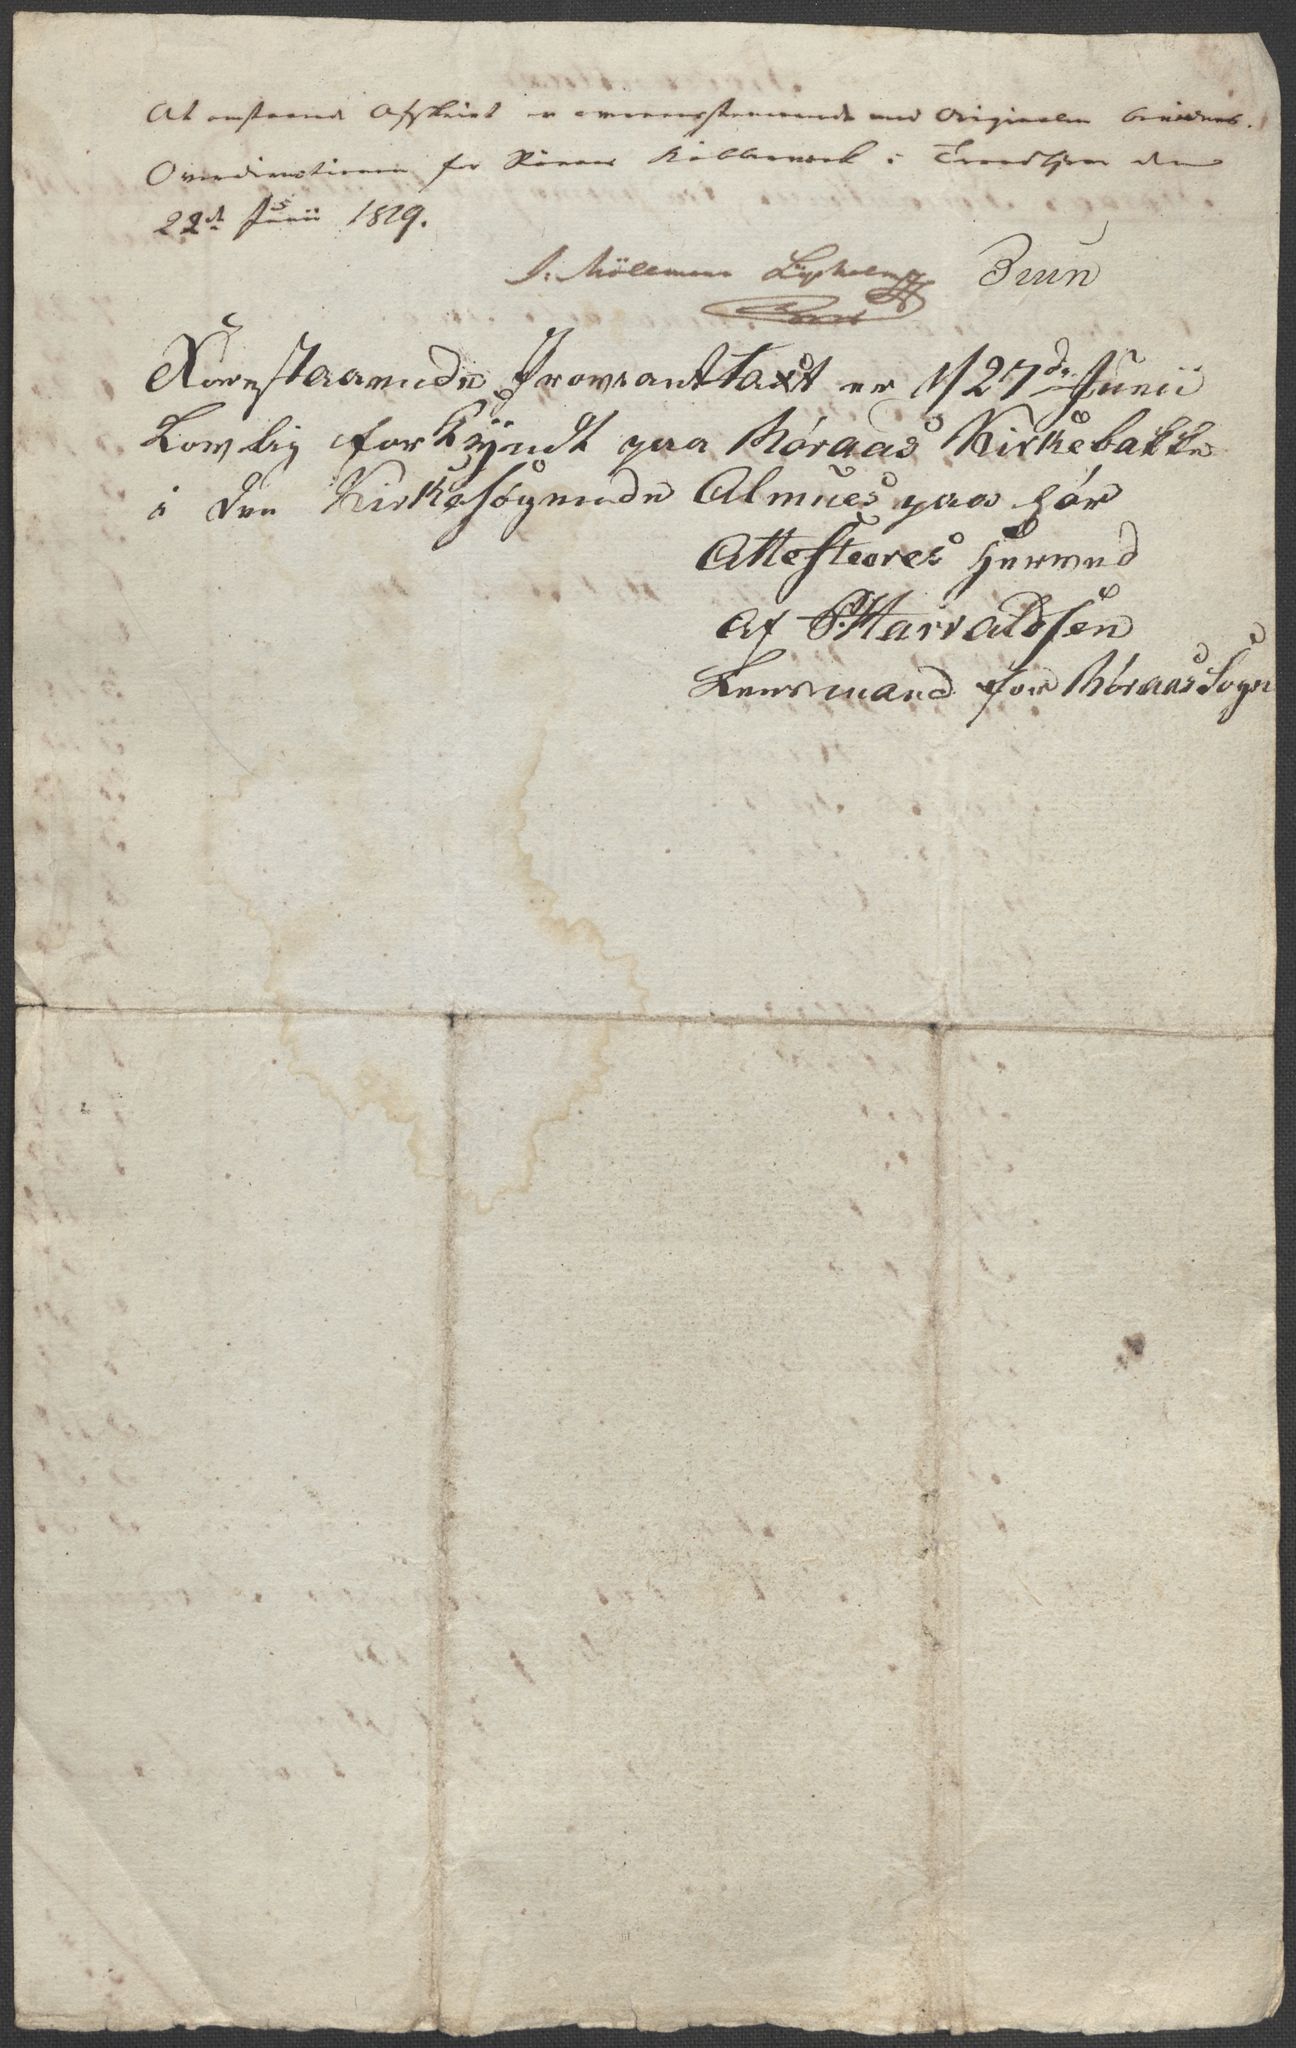 At omstaaende Afskrivt er overensstemmende med Originalen bevidnes.
Overdirectionen for Röraas Kobberverk i Trondhjem den
22de Junii 1819.
J. Möllmann Lysholm Bruun
Forestaaende Proviant Taxt er d 27de Junii
Lovlig forkÿndt paa Röraas Kirkebakke
i den Kirkesögende Almues paa hör
Attesteeres herved
Af P. Harraldsen
Lensmand for Röraas Sogn